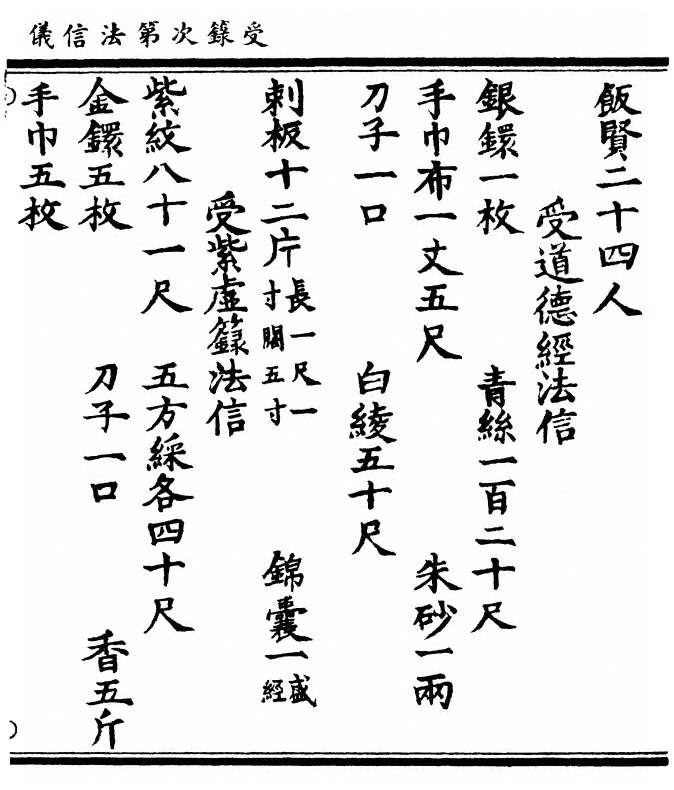 受籙次第法信儀
飯賢二十四人
受道德經法信
銀鐶一枚　青絲一百二十尺
手巾布一丈五尺　朱砂一兩
刀子一口　白綾五十尺
刺板十二片長一尺一寸闊五寸　錦囊一盛經
受紫虛籙法信
紫紋八十一尺　五方綵各四十尺
金鐶五枚　刀子一口　香五斤
手巾五枚